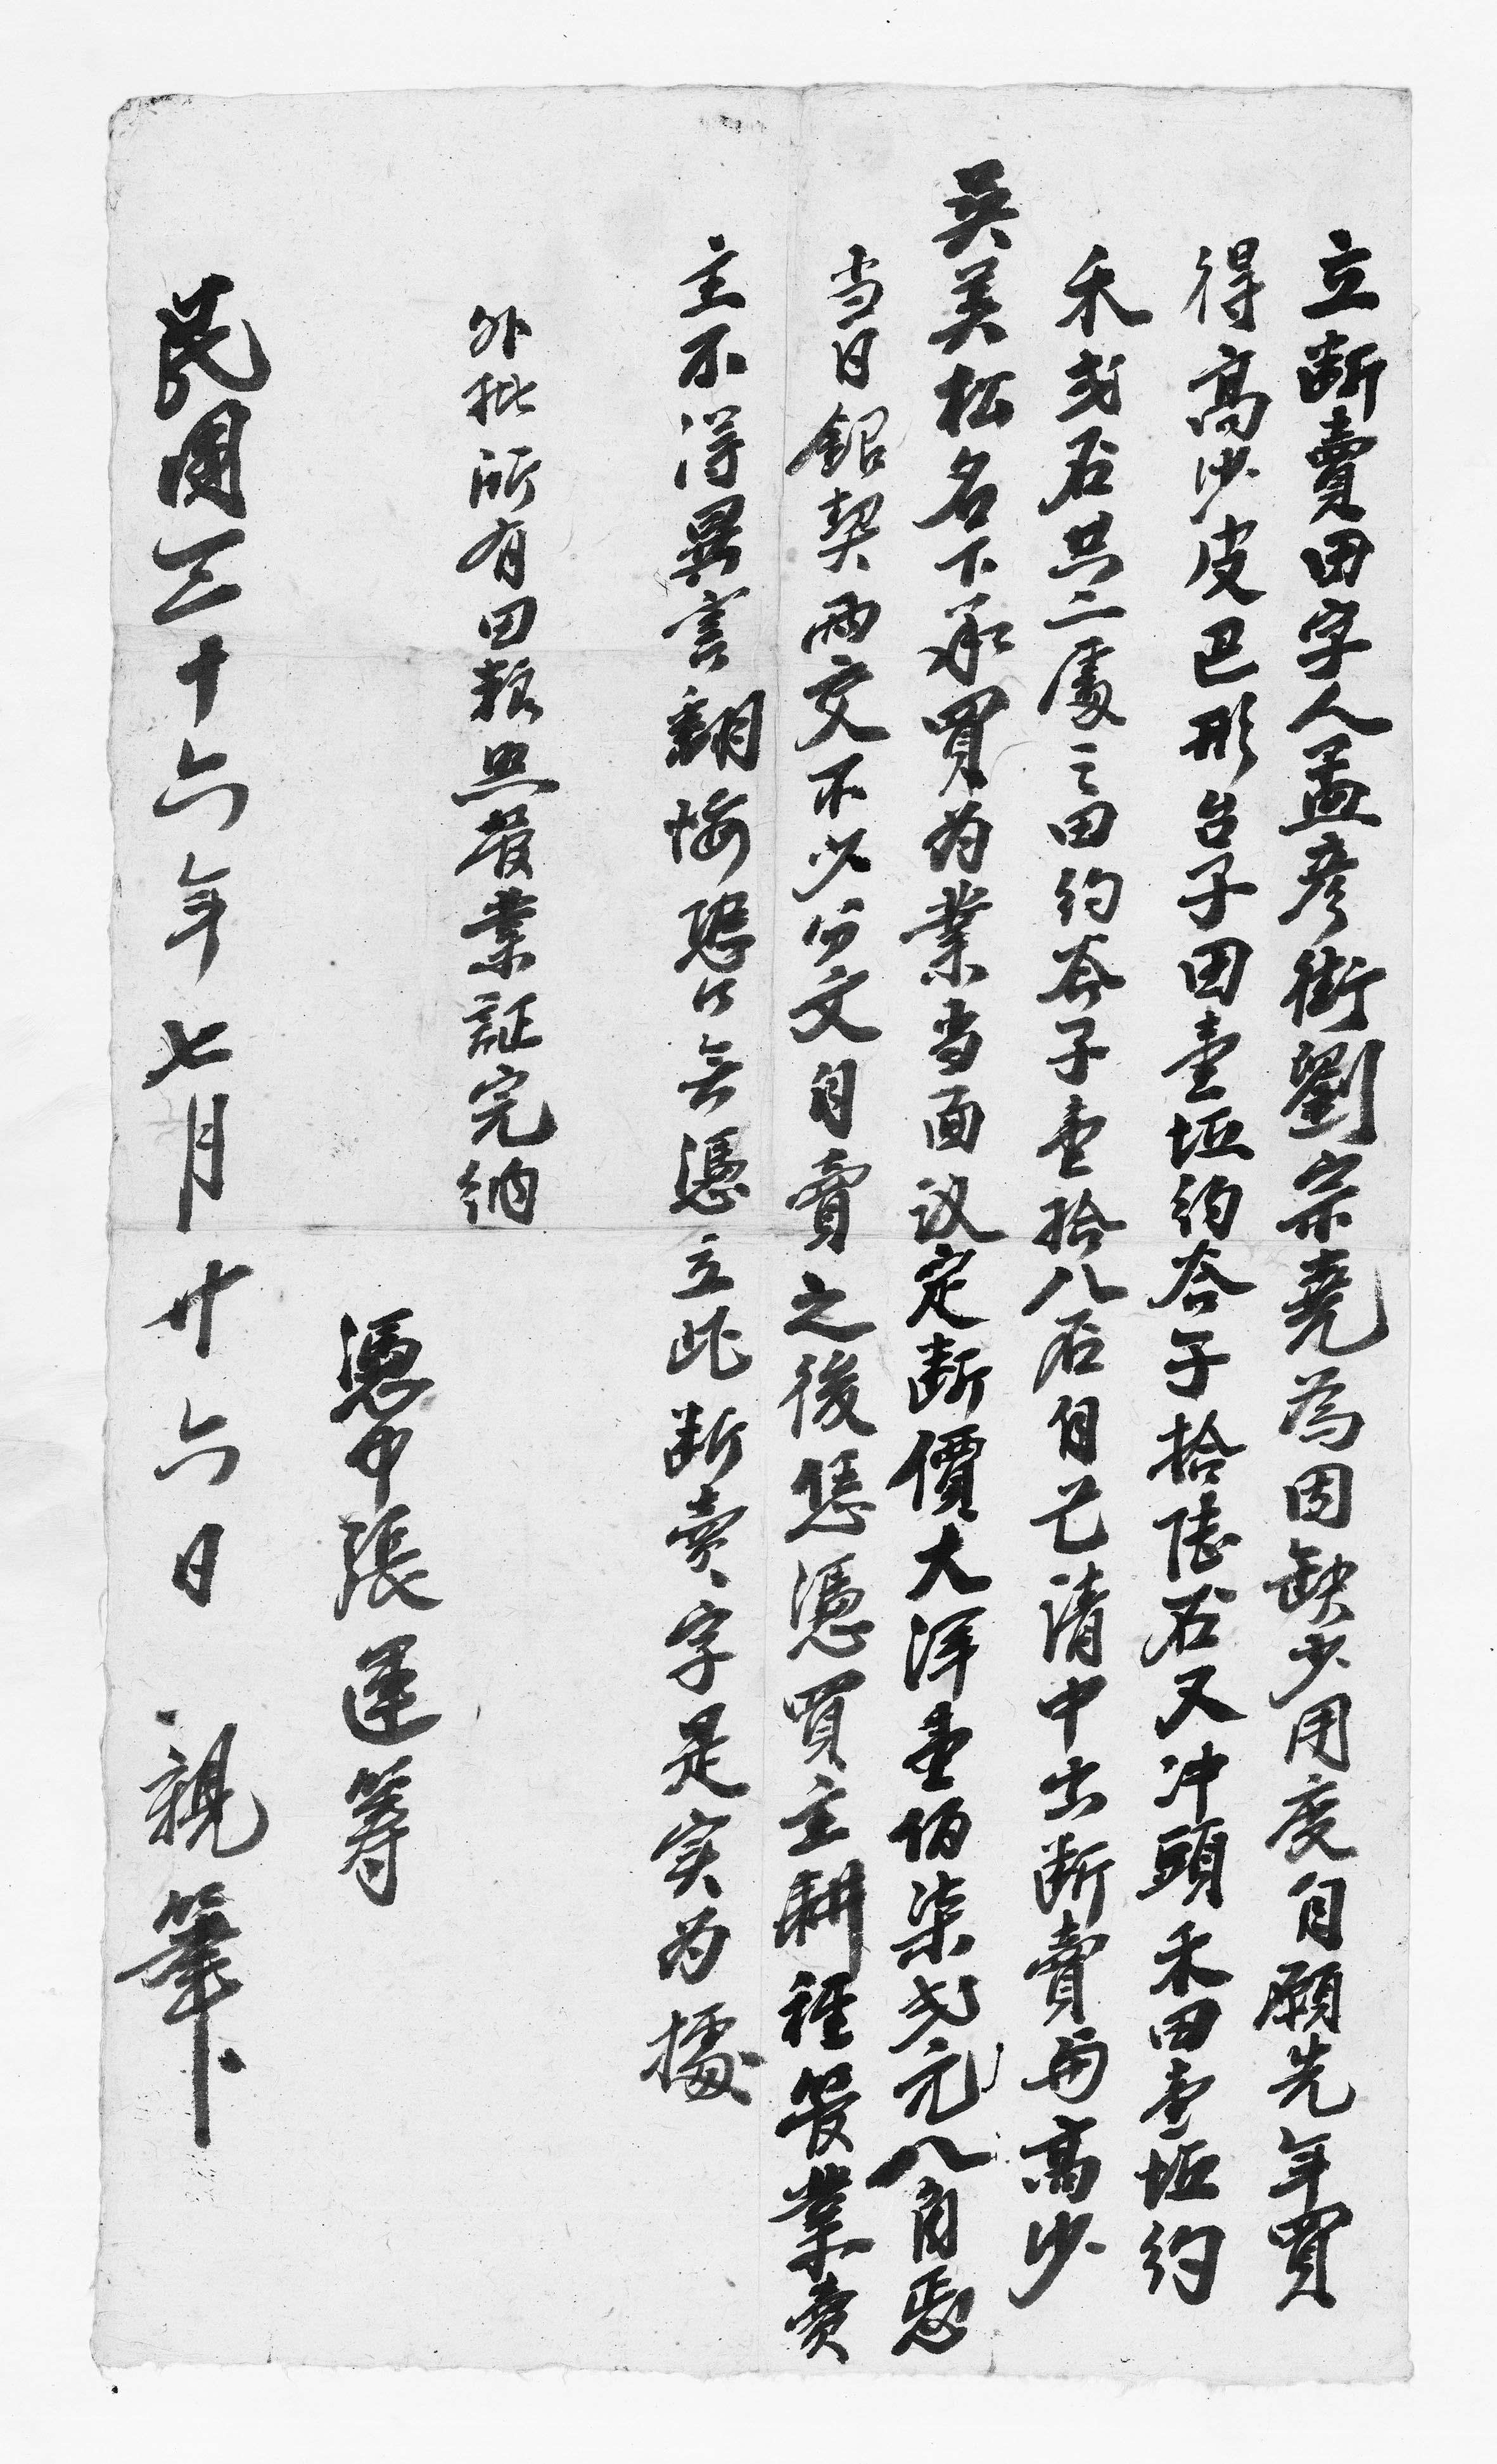 立断賣田字人孟彦街劉宗堯為因缺少用度自願先年買
得高沙皮巴形台子田壹坵約谷子拾陆石又冲頭禾田壹坵約
禾弍石共二處之田約谷子壹拾八石自己請中出断賣与高沙
吴美松名下承買为業当面议定断價大洋壹佰柒弍元八角
当日銀契両交不少分文自賣之後恁憑買主耕種管業賣
主不得異言翻悔恐口无憑立此断卖字是实为據
外批所有田粮照管業証完納
憑中張運筹
民国三十六年七月廿六日 親筆